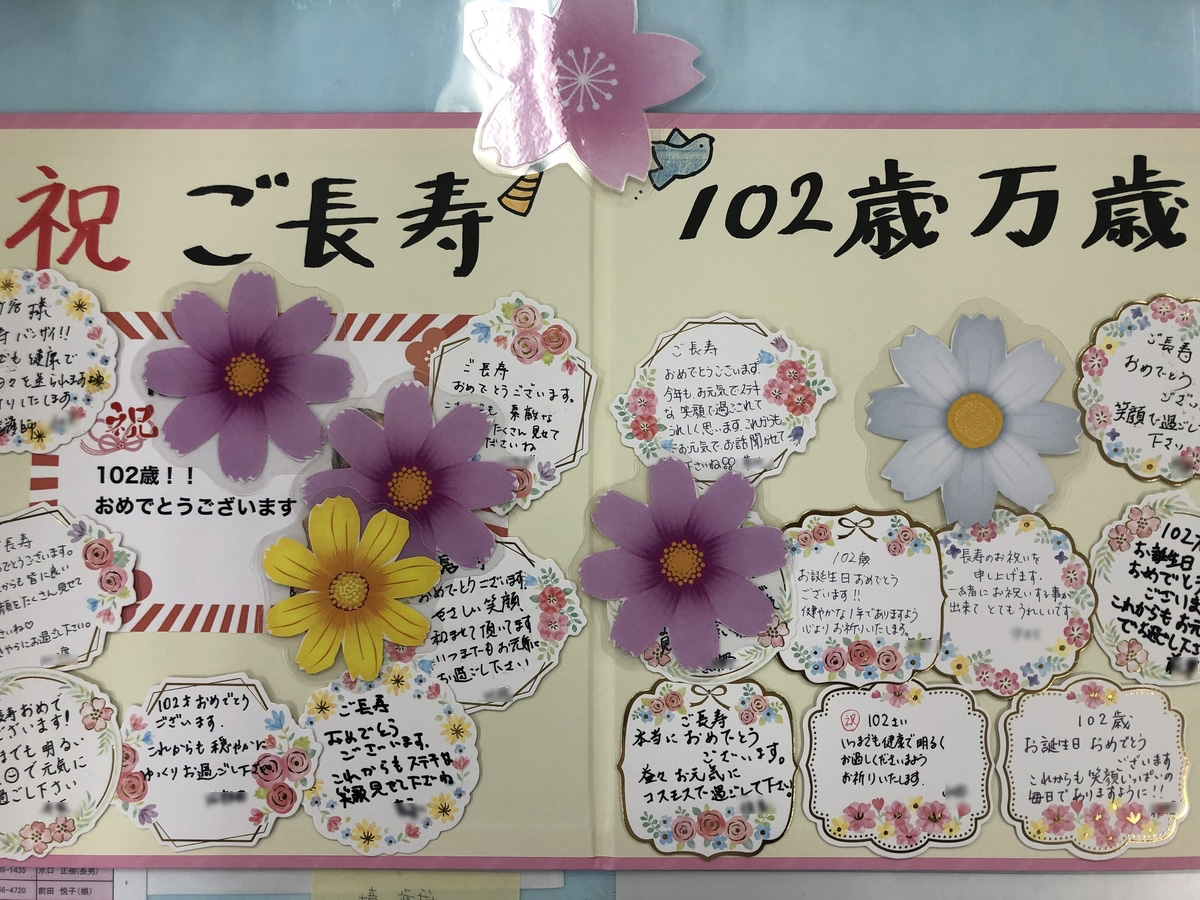 祝 ご長寿
102歳万歳
様
寿 バンザイ!!
でも 健康で
々を送られます様
りします
祝
102歳!!
おめでとうございます
ご長寿
おめでとうございます。
素敵な
たくさん見せて
ださいね
長寿
でとうございます。
からも 皆に良い
顔をたくさん見せて
さいね♡
やかにお過ごし下さい。
おめでとうございます
やさしい笑顔
和ませて頂いてます
いつまでもお元気に
お過ごし下さい
長寿おめで
ございます!
までも 明るい
で元気に
過ごし下さい
102才おめでとう
ございます。
これからも 穏やかに
ゆっくりお過ごし下さい
ご長寿
おめでとう
ございます。
これからもステキな
笑顔見せて下さいね
ご長寿
おめでとうございます。
今年も、お元気でステキ
な 笑顔で過ごされて
うれしく思います。これからも
お元気で、お話聞かせて
下さいね
ご長寿
おめでとう
笑顔で過ごし
下さい
102歳
お誕生日おめでとう
ございます!!
健やかな1年でありますよう
心よりお祈りいたします。
長寿のお祝いを
申し上げます。
一緒にお祝いする事が
出来て とてもうれしいです
102
お誕生日
おめでと
これからもお元
ご長寿
本当に おめでとう
ございます。
益々 お元気に
コスモスで過ごして下さい
102さい
いつまでも健康で明るく
お過ごしされますよう
お祈りいたします。
102歳
お誕生日 おめでとう
ございます
これからも笑顔いっぱいの
毎日でありますように!!
9-1435 水口 正樹(長男)
6-4720 前田 悦子(娘)